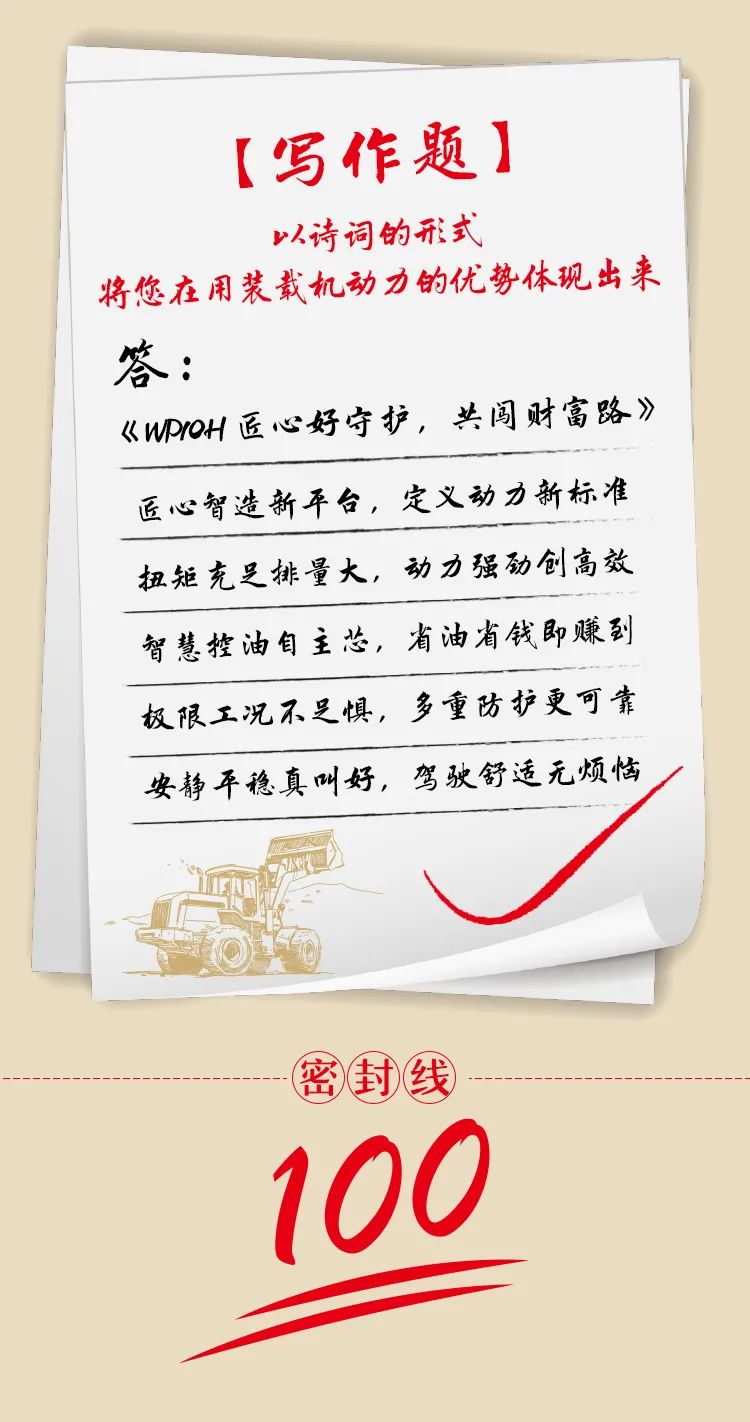 【写作题】
以诗词的形式
将您在用装载机动力的优势体现出来
答：
《WP10H 匠心好守护，共闯财富路》
匠心智造新平台，定义动力新标准
扭矩充足排量大，动力强劲创高效
智慧控油自主芯，省油省钱即赚到
极限工况不足惧，多重防护更可靠
安静平稳真叫好，驾驶舒适无烦恼
密封线
100